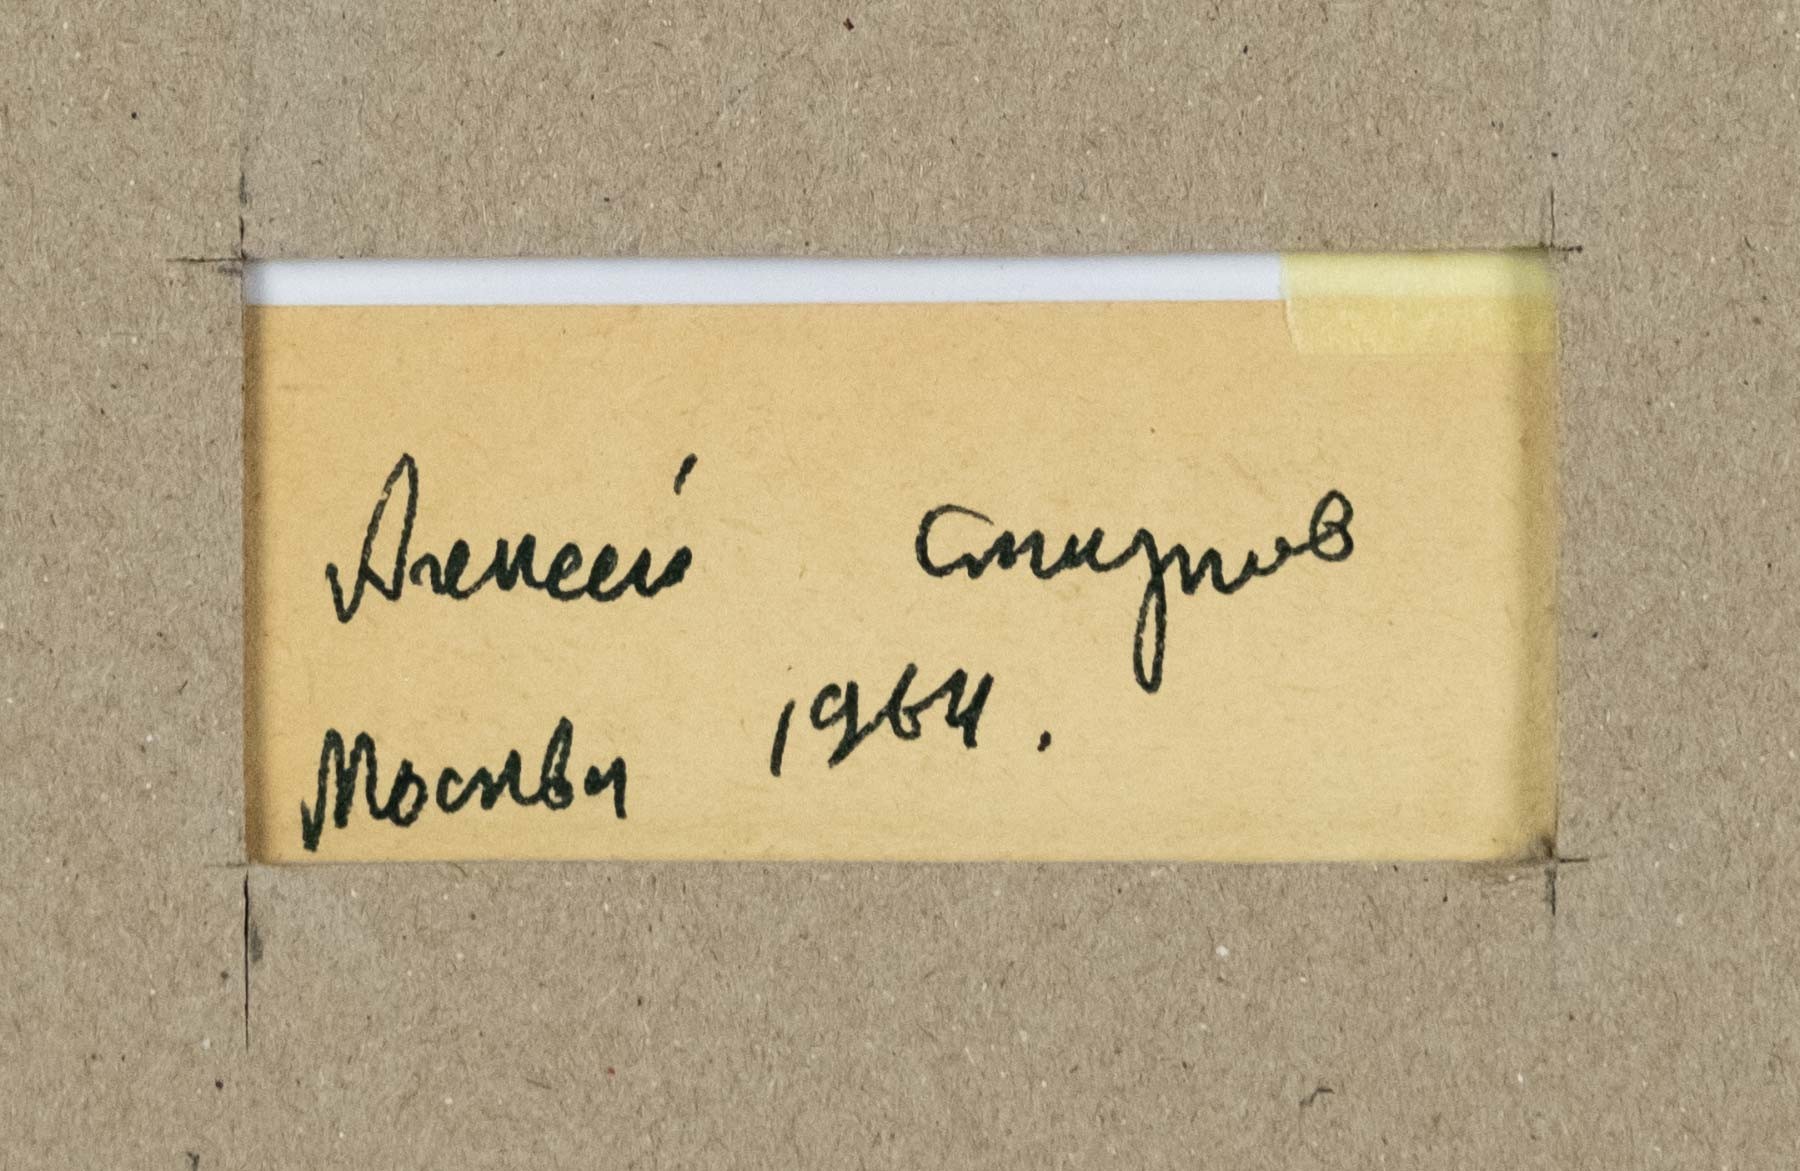 Алексей Смирнов
1964.
Москва